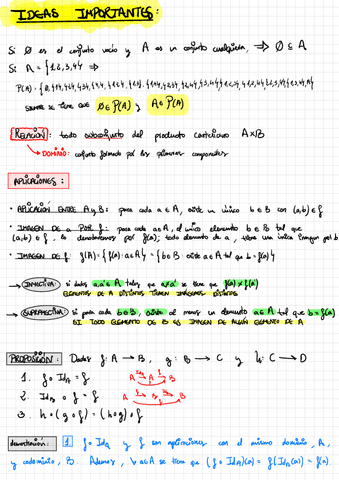 IDEAS IMPORTANTES:
Si ∅ es el conjunto vacío y A es un conjunto cualquiera, ⟹ ∅ ⊆ A
Si A = {1,2,3,4} ⟹
SIEMPRE SE TIENE QUE ∅ ∈ P(A) y A ∈ P(A)
RELACIÓN: todo subconjunto del producto cartesiano A×B
DOMINIO: conjunto formado por las primeras componentes
APLICACIONES:
• APLICACIÓN ENTRE A y B: para cada a ∈ A, existe un único b ∈ B con (a,b) ∈ f
• IMAGEN DE a POR f: para cada a ∈ A, el único elemento b ∈ B tal que
(a,b) ∈ f, lo denotaremos por f(a); todo elemento de a, tiene una única imagen por b
• IMAGEN DE f: f(A) = {f(a): a ∈ A} = {b ∈ B: existe a ∈ A tal que b = f(a)}
→ INYECTIVA: si dados a,a' ∈ A tales que a ≠ a' se tiene que f(a) ≠ f(a')
ELEMENTOS DE A DISTINTOS TIENEN IMÁGENES DISTINTAS
→ SUPRAYECTIVA: si para cada b ∈ B, existe al menos un elemento a ∈ A tal que b = f(a)
SI TODO ELEMENTO DE B ES IMAGEN DE ALGÚN ELEMENTO DE A
PROPOSICIÓN: Dadas f: A → B, g: B → C y h: C → D
1. f ∘ Id_A = f
2. Id_B ∘ f = f
3. h ∘ (g ∘ f) = (h ∘ g) ∘ f
demostración: 1. f ∘ Id_A y f son aplicaciones con el mismo dominio, A,
y codominio, B. Además, ∀ a ∈ A se tiene que (f ∘ Id_A)(a) = f(Id_A(a)) = f(a).